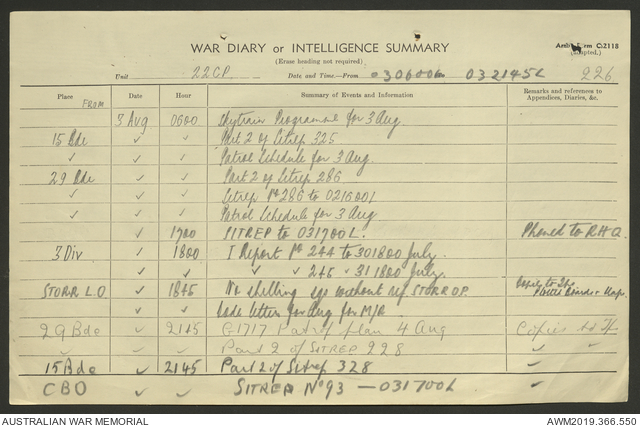 WAR DIARY or INTELLIGENCE SUMMARY
Army Form C.2118
(Erase heading not required)
(Adapted.)
Unit 22CP. Date and Time—From 030600L 032145L 226
Place Date Hour Summary of Events and Information Remarks and references to Appendices, Diaries, &c.
FROM
3 Aug 0600 Skytrain Programme for 3 Aug
15 Bde ✓ ✓ Part 2 of Sitrep 325
✓ ✓ ✓ Patrol Schedule for 3 Aug.
29 Bde ✓ ✓ Part 2 of Sitrep 286
✓ ✓ ✓ Sitrep No 286 to 021600L
✓ ✓ ✓ Patrol Schedule for 3 Aug
✓ 1700 SITREP to 031700L. Phoned to RHQ.
3 Div ✓ 1800 I Report No 244 to 301800 July.
✓ ✓ " " 245 " 311800 July.
STORR L.O ✓ 1845 No shelling without ref STORR OP. Copy to
✓ ✓ Code letters for Aug for
29 Bde ✓ 2145 G1717 Patrol plan 4 Aug Copies to
✓ ✓ ✓ Part 2 of SITREP 228 ✓ ✓
15 Bde ✓ 2145 Part 2 of Sitrep 328 ✓ ✓
CBO ✓ ✓ SITREP No 93 — 031700L ✓
AUSTRALIAN WAR MEMORIAL
AWM2019.366.550